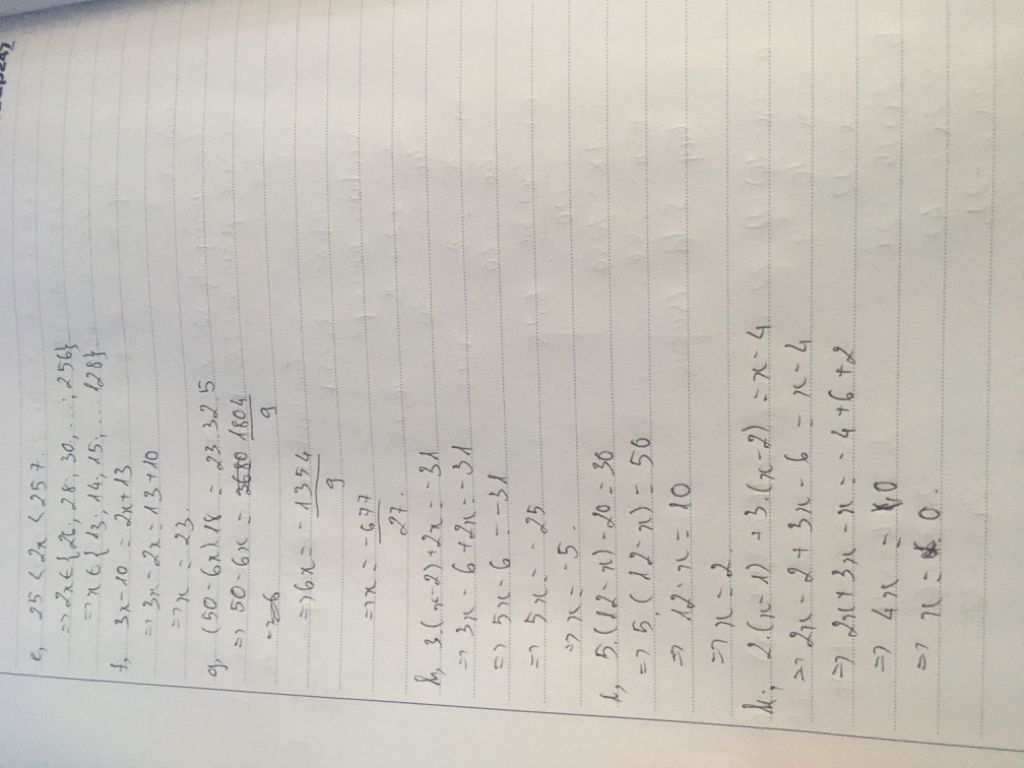 e, 25 < 2x < 257
=> 2x ∈ {26, 28, 30, ...; 256}
=> x ∈ {13, 14, 15, ... 128}
f, 3x - 10 = 2x + 13
=> 3x - 2x = 13 + 10
=> x = 23.
g, (50 - 6x) 18 = 23. 32. 5
=> 50 - 6x = 1804/9
=> 6x = -1354/9
=> x = -677/27.
h, 3.(x-2) + 2x = -31
=> 3x - 6 + 2x = -31
=> 5x - 6 = -31
=> 5x = -25
=> x = -5.
i, 5.(12-x) - 20 = 30
=> 5.(12-x) = 50
=> 12 - x = 10
=> x = 2
k, 2.(x-1) + 3.(x-2) = x - 4
=> 2x - 2 + 3x - 6 = x - 4
=> 2x + 3x - x = -4 + 6 + 2
=> 4x = 0
=> x = 0.